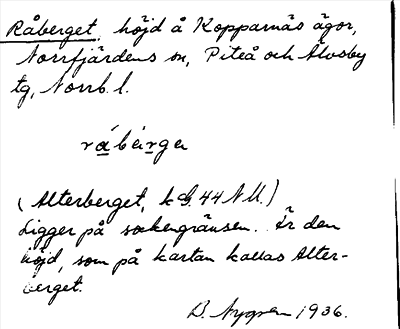 Råberget, höjd å Kopparnäs ägor,
Norrfjärdens sn, Piteå och Älvsby
tg, Norrb. l.
råbérgẹ
(Alterberget, 44 NU.)
Ligger på sockengränsen. Är den
höjd, som på kartan kallas Alter-
berget.
D. Nygren 1936.